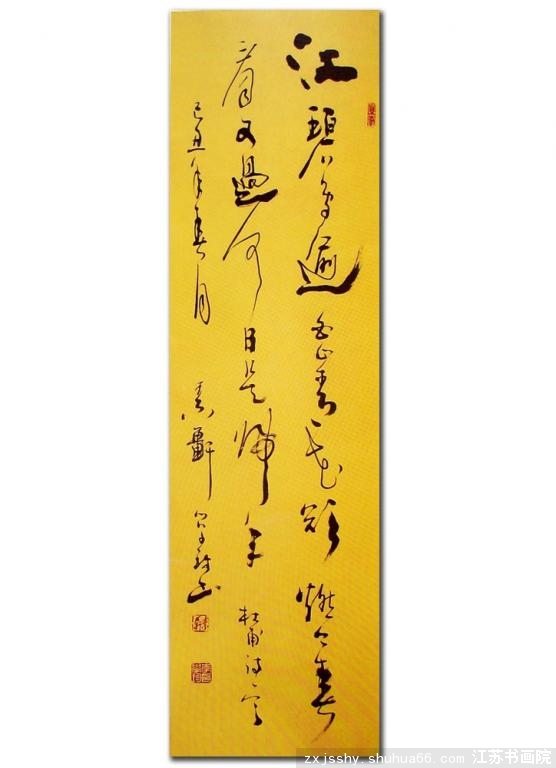 江碧鳥逾白山青花欲燃今春
看又過何日是歸年 杜甫诗
己丑年春月
zxjsshy.shuhua66.com 江苏书画院